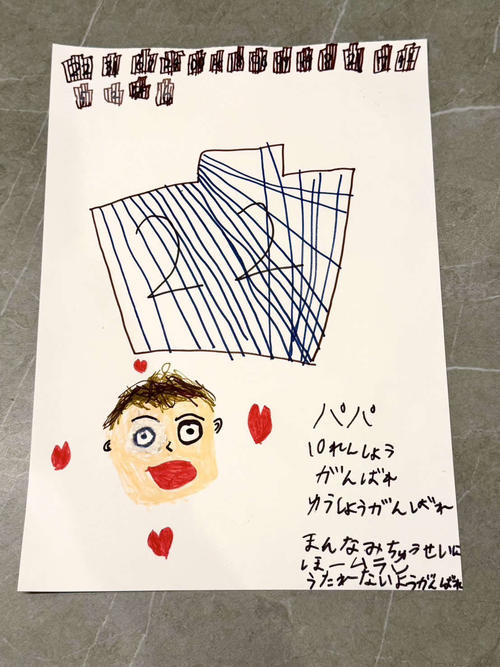 22
パパ
10れんしょう
がんばれ
ゆうしょうがんばれ
まんなみちゅうせいに
ほームラン
うたれないようがんばれ